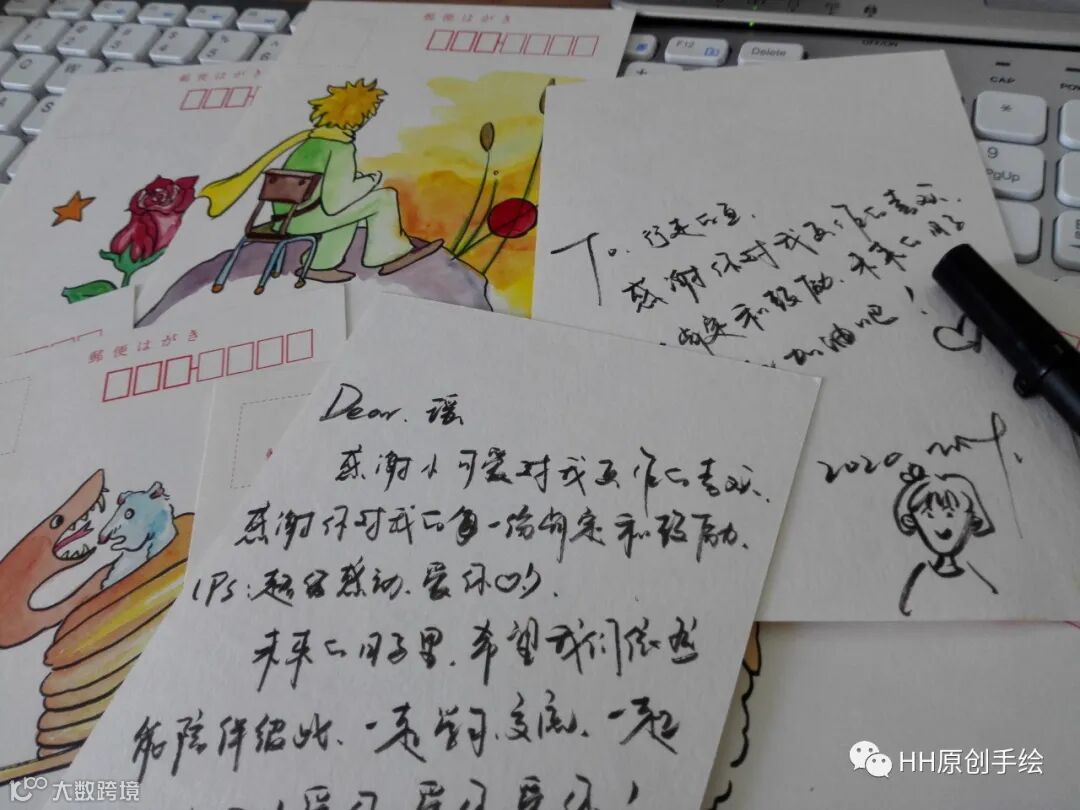 郵便はがき
郵便はがき
F12
Delete
ON/OFF
CAP
9
PgUp
To. 行走的鱼.
感谢你对我画作的喜欢.
肯定和鼓励. 未来的日子
加油吧!
2020
郵便はがき
Dear. 瑶
感谢小可爱对我画作的喜欢.
感谢你对我的每一份肯定和鼓励.
(PS: 超级感动. 爱你哟).
未来的日子里. 希望我们依然
能陪伴彼此. 一起学习. 交流. 一起
爱你 爱你 爱你!
HH原创手绘
大数跨境